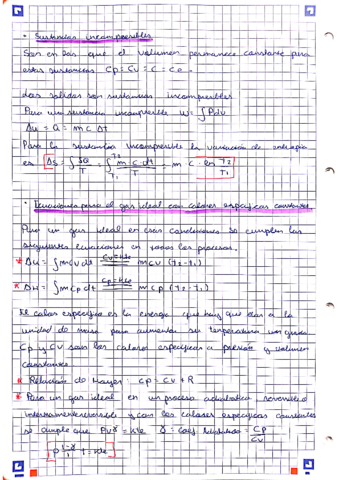 • Sustancias incompresibles
Son en las que el volumen permanece constante para
estas sustancias Cp = Cv = C = cte.
Los sólidos son sustancias incompresibles
Para una sustancia incompresible W = ∫ Pdv
Δu = Q = m c Δt
Para la sustancia incompresible la variación de entropia
es Δs = ∫ δQ/T = ∫_{T1}^{T2} m·c·dt/T = m·c·ln T2/T1
• Ecuaciones para el gas ideal con calores especificos constantes
Para un gas ideal en esas condiciones se cumplen las
siguientes ecuaciones en todos los procesos.
* Δu = ∫ m cv dt Cv=kte = m cv (T2-T1)
* ΔH = ∫ m cp dt Cp=kte = m cp (T2-T1)
El calor especifico es la energia que hay que dar a la
unidad de masa para aumentar su temperatura un grado
Cp y Cv son los calores especificos a presión y volumen
constantes
* Relación de Mayer: cp = cv + R
* Para un gas ideal en un proceso adiabatico reversible
internamente y con los calores especificos constantes
se cumple que Pv^γ = kte γ = coef = Cp/Cv
P^{1-γ/γ} T = kte